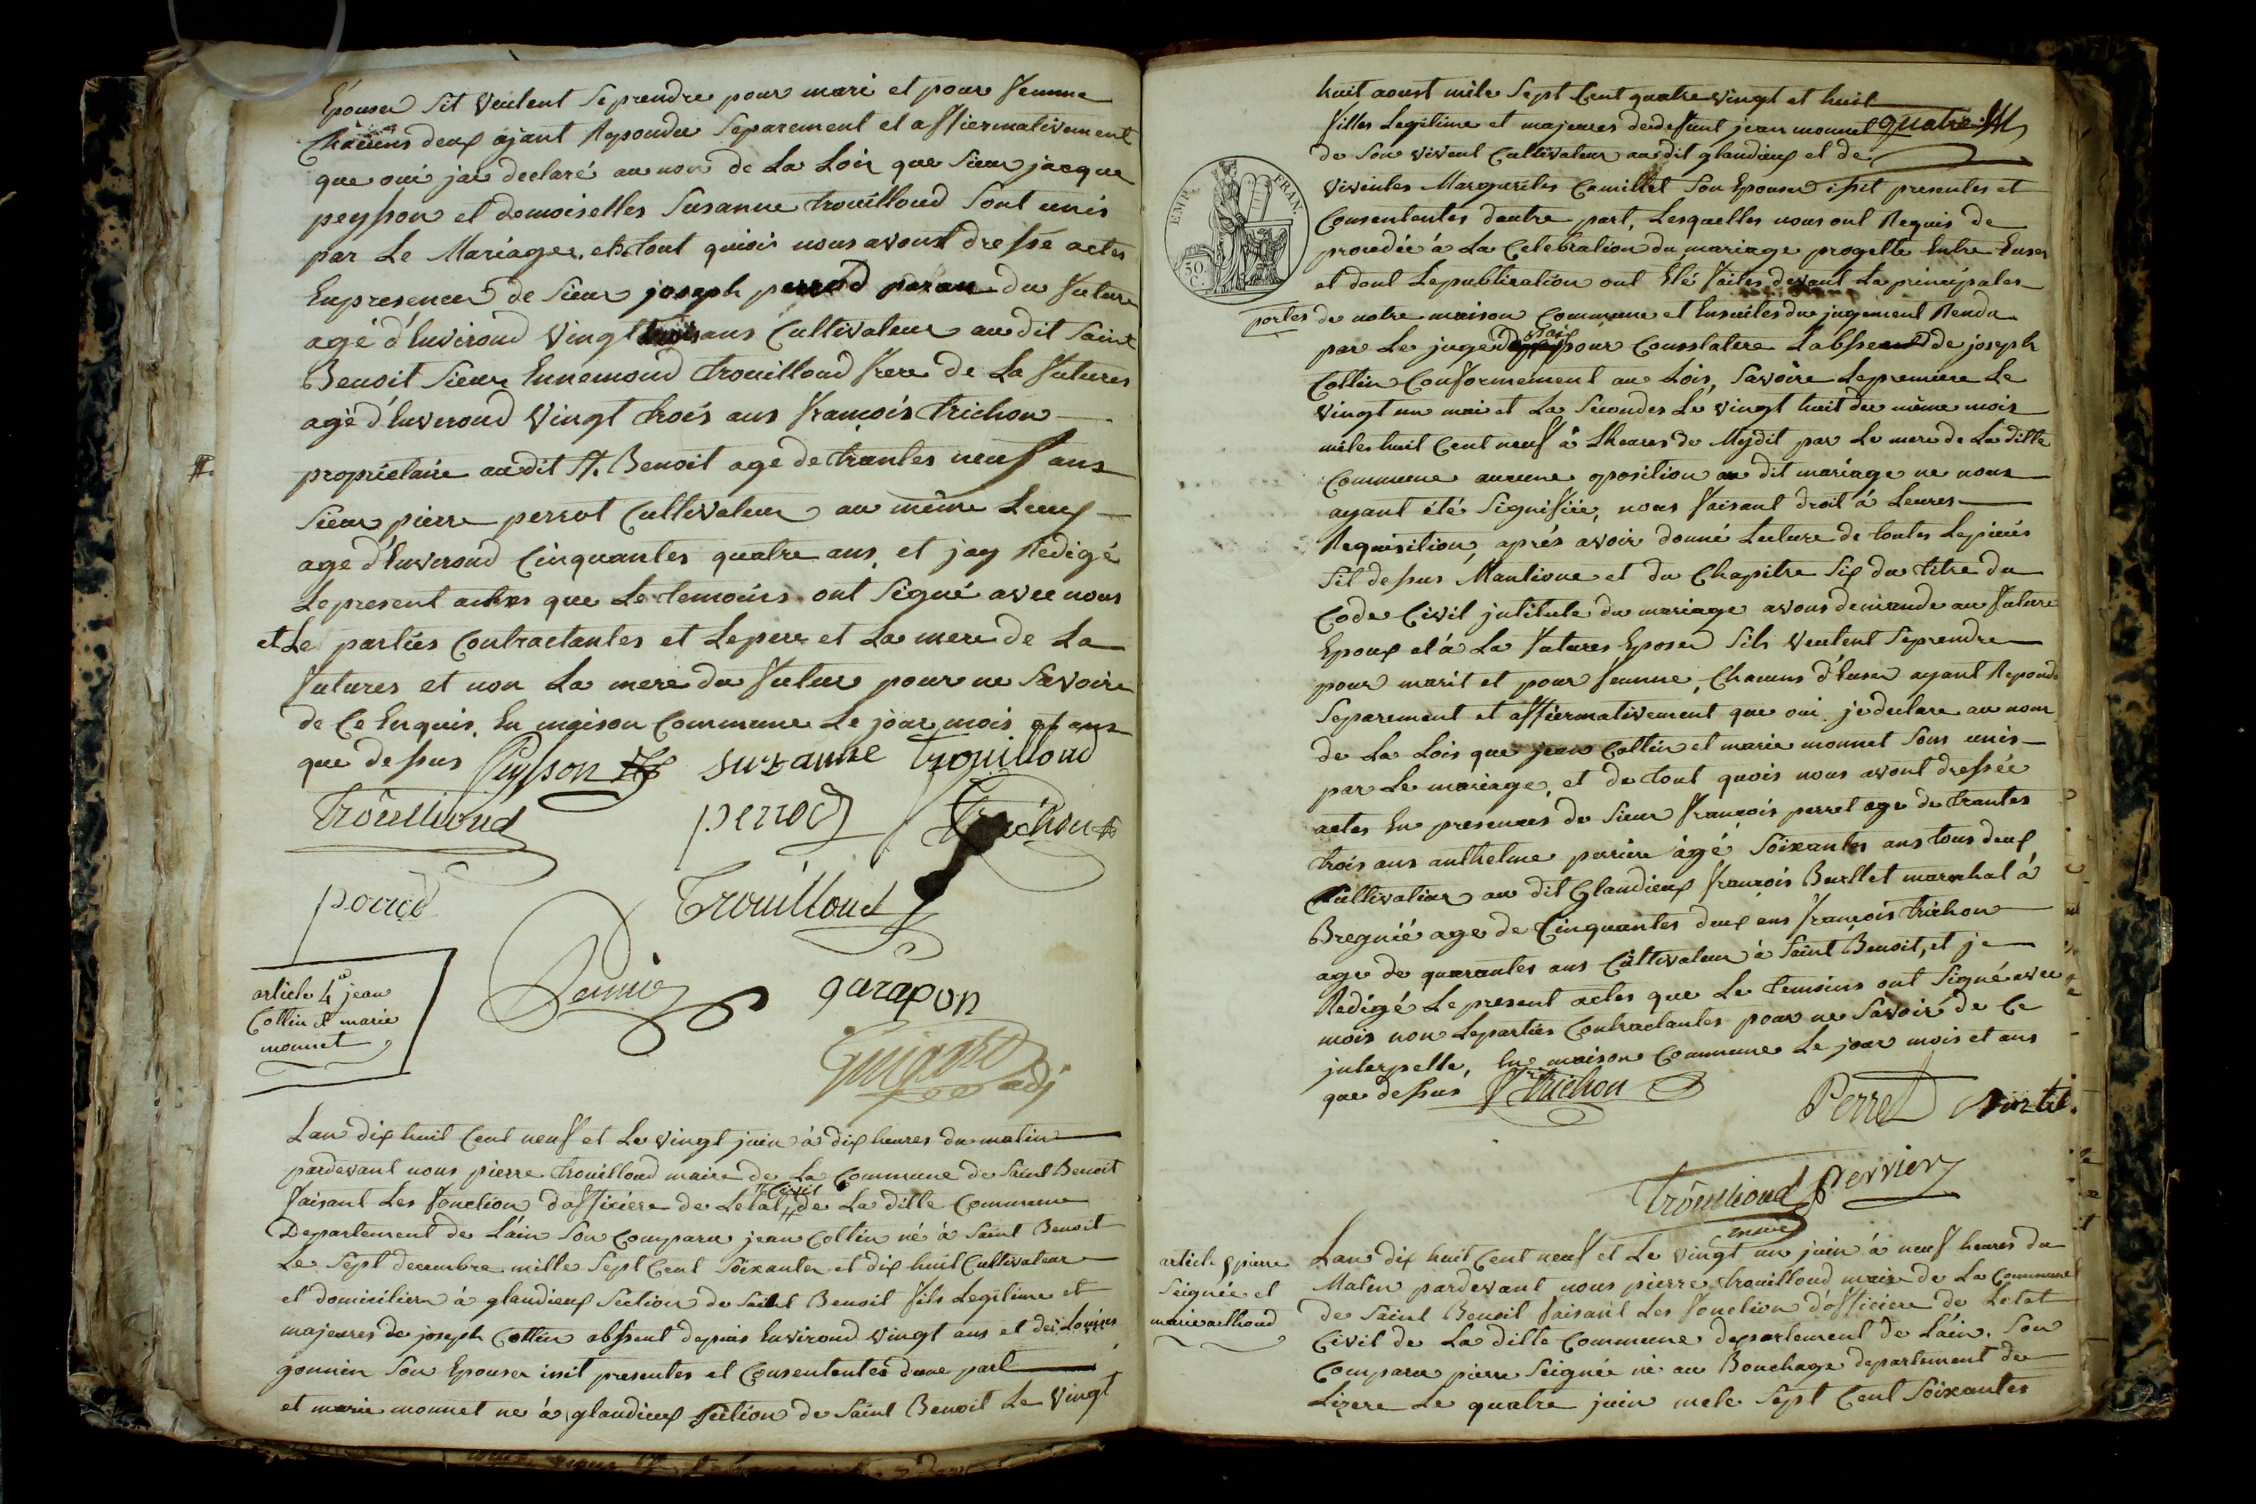 Épouser sit veulent se prendre pour mari et pour femme
Chacuns deux ájant Répondu Separement et affiermativement
que oui jai declaré au nom de La Loix que Sieur jacque
peysson et demoiselles Susanne trouilloud Sont unis
par Le Mariages, et de tout quiois nous avons dressé actes
En presences de Sieur joseph perrod du future
agé d'Environd vingt ans Cultivateur audit Saint
Benoit Sieur Ennemond trouilloud frere de La futures
agé d'Environd Vingt trois ans françois trichon
proprietaire audit St. Benoit age de trantes neuf ans
Sieur pierre perrot Cultivateur au même Lieux
age d'Environd Cinquantes quatre ans, et jay Rédigé
Le present actes que Le temoins ont Signé avec nous
et Le parties Contractantes et Le pere et La mere de La
futures et non La mere du futur pour ne Savoire
de Ce Enquis. En maison Commune Le jour mois et ans
que dessus Peysson suzanne trouilloud
Trouilloud perrod Trichon
perrod Trouilloud
article 4e jean
Collin & marie
monnet
garapon
adj
Lan dix huit Cent neuf et Le vingt juin à dix heures du matin
pardevant nous pierre trouilloud maire de La Commune de Saint Benoit
faisant Les fonction d'officiere de Letat Civil de La ditte Commune
Departement de Láin Son Comparu jean Collin né à Saint Benoit
Le Sept decembre mille Sept Cent Soixantes et dix huit Cultivateur
et domicilier à glandieux Section de Saint Benoit fils Legitime et
majeures de joseph Collin absent depuis Environd vingt ans et de Louise
gonnin Son Epouser issit presentes et Consententes dune part
et marie monnet ne à glandieux Section de Saint Benoit Le vingt
huit aoust mile Sept Cent quatre vingt et huit
filles Legitime et majeures dedefunt jean monnet quatre
de Son vivent Cultivateur audit glandieux et de
viventes Margurites Camillet Son Epouser issit presentes et
Consententes dautre part, Lesquelles nous ont Requis de
procedée à La Celebration du mariage progette Entre Euser
et dont Le publication ont Eté faites devant La principales
portes de notre maison Commune et Ensuites du jugement Rendu
par Le juge de paix pour Consstatere Labssence de joseph
Collin Conformement au Lois, Savoire Le premiere Le
vingt un mai et La Secondes Le vingt huit du même mois
miles huit Cent neuf à Lheures de Mydit par Le mere de La ditte
Commune aucune oposition au dit mariage ne nous
ayant été Signifiée, nous faisant droit à Leures
Requisition, aprés avoir donné Lecture de toutes Le pieces
Sit dessus Mantione et du Chapitre Six du titre du
Code Civil jntitule du mariage avons demende au future
Epoux et à La futures Eposer Sils veulent Se prendre
pour marit et pour femme, Chacuns d'Euser ayant Repondu
Separement et affiermativement que oui je declare au nom
de La Lois que jean Collin et marie monnet Sons unis
par Le mariage, et de tout quois nous avont dressée
actes En presences de Sieur françois perret age de trantes
trois ans anthelme age Soixantes ans tous deux
Cultivateur au dit Glandieux françois Burllet marechal à
Bregnié age de Cinquantes deux ans françois trichon
age de quarantes ans Cultivateur à Saint Benoit, et je
Redigé Le present actes que Le temoins ont Signé avec
mois non Le parties Contractantes pour ne Savoire de Ce
jnterpelle, En maison Commune Le jour mois et ans
que dessus f trichon Perret
Trouilloud Perrier
maire
article 5 pierre
Seignée et
marie
Lan dix huit Cent neuf et Le vingt un juin à neuf heures du
Matin pardevant nous pierre trouilloud maire de La Commune
de Saint Benoit faisant Les fonction d'officiere de Letat
Civil de La ditte Commune departement de Láin. Son
Comparu pierre Seignée né au Bouchage departement de
Lizere Le quatre juin mele Sept Cent Soixantes
EMP. FRAN.
50 C.